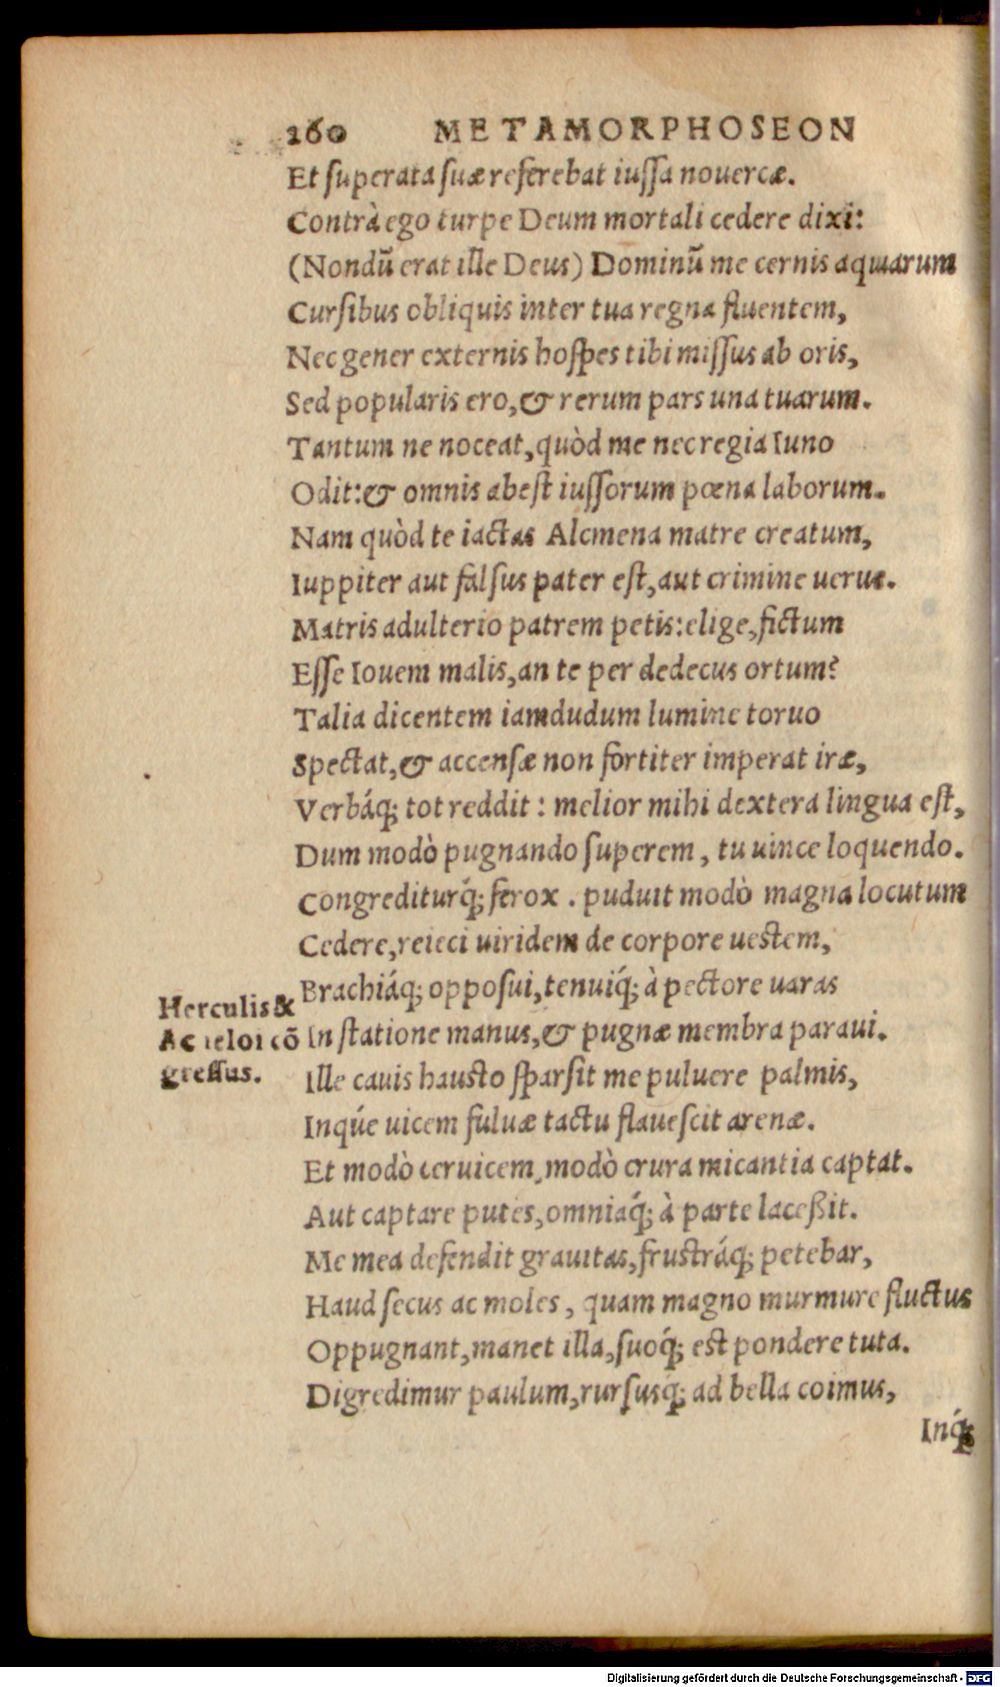 260 METAMORPHOSEON
Et ſuperata ſuæ referebat iuſſa nouercæ.
Contrà ego turpe Deum mortali cedere dixi:
(Nondũ erat ille Deus) Dominũ me cernis aquarum
Curſibus obliquis inter tua regna fluentem,
Nec gener externis hoſpes tibi miſſus ab oris,
Sed popularis ero,& rerum pars una tuarum.
Tantum ne noceat, quòd me nec regia Iuno
Odit:& omnis abeſt iuſſorum pœna laborum.
Nam quòd te iactas Alcmena matre creatum,
Iuppiter aut falſus pater eſt, aut crimine uerus.
Matris adulterio patrem petis: elige, fictum
Eſſe Iouem malis, an te per dedecus ortum?
Talia dicentem iamdudum lumine toruo
Spectat,& accenſæ non fortiter imperat iræ,
Verbáq; tot reddit : melior mihi dextera lingua eſt,
Dum modò pugnando ſuperem, tu uince loquendo.
Congrediturq́; ferox . puduit modò magna locutum
Cedere, reieci uiridem de corpore ueſtem,
Brachiáq; oppoſui, tenuiq́; à pectore uaras
Herculis &
Acheloi cõ
greſſus.
In ſtatione manus,& pugnæ membra paraui.
Ille cauis hauſto ſparſit me puluere palmis,
Inqúe uicem fuluæ tactu flaueſcit arenæ.
Et modò ceruicem, modò crura micantia captat.
Aut captare putes, omniaq́; à parte laceßit.
Me mea defendit grauitas, fruſtráq; petebar,
Haud ſecus ac moles, quam magno murmure fluctus
Oppugnant, manet illa, ſuoq́; eſt pondere tuta.
Digredimur paulum, rurſusq́; ad bella coimus,
Inq́;
Digitalisierung gefördert durch die Deutsche Forschungsgemeinschaft - DFG